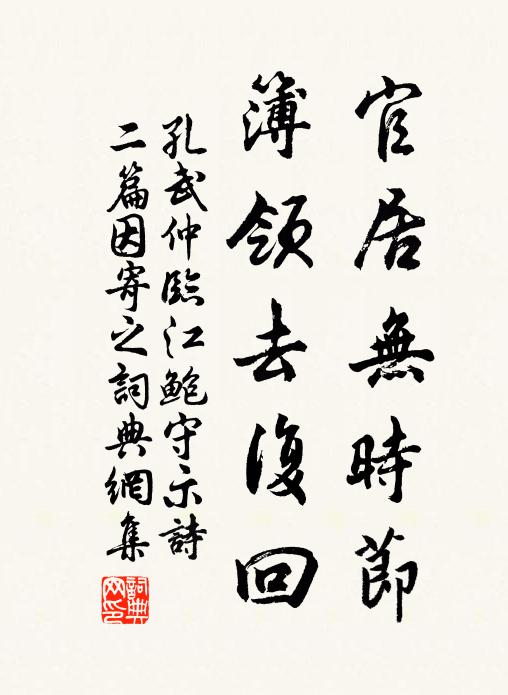 官居無時節
簿領去復回
孔武仲臨江鮑守示詩
二篇因寄之詞典網集
詞典網印